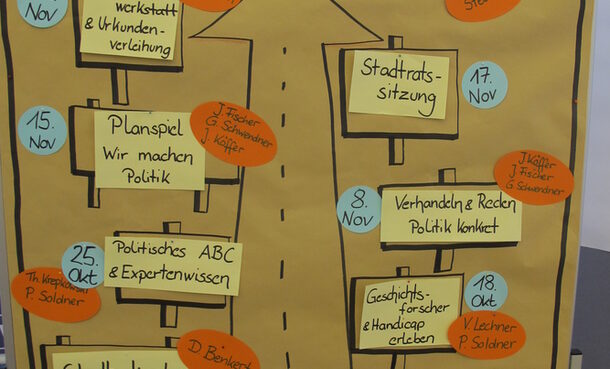 Nov
werkstatt
& Urkunden-
verleihung
Stadtrats-
sitzung
17.
Nov
15.
Nov
Planspiel
Wir machen
Politik
J. Fischer
G. Schwendner
J. Käffer
J. Käffer
J. Fischer
G. Schwendner
8.
Nov
Verhandeln & Reden
Politik konkret
25.
Okt
Politisches ABC
& Expertenwissen
Th. Krepkowski
P. Soldner
Geschichts-
forscher
& Handicap
erleben
18.
Okt
V. Lechner
P. Soldner
D. Benkert